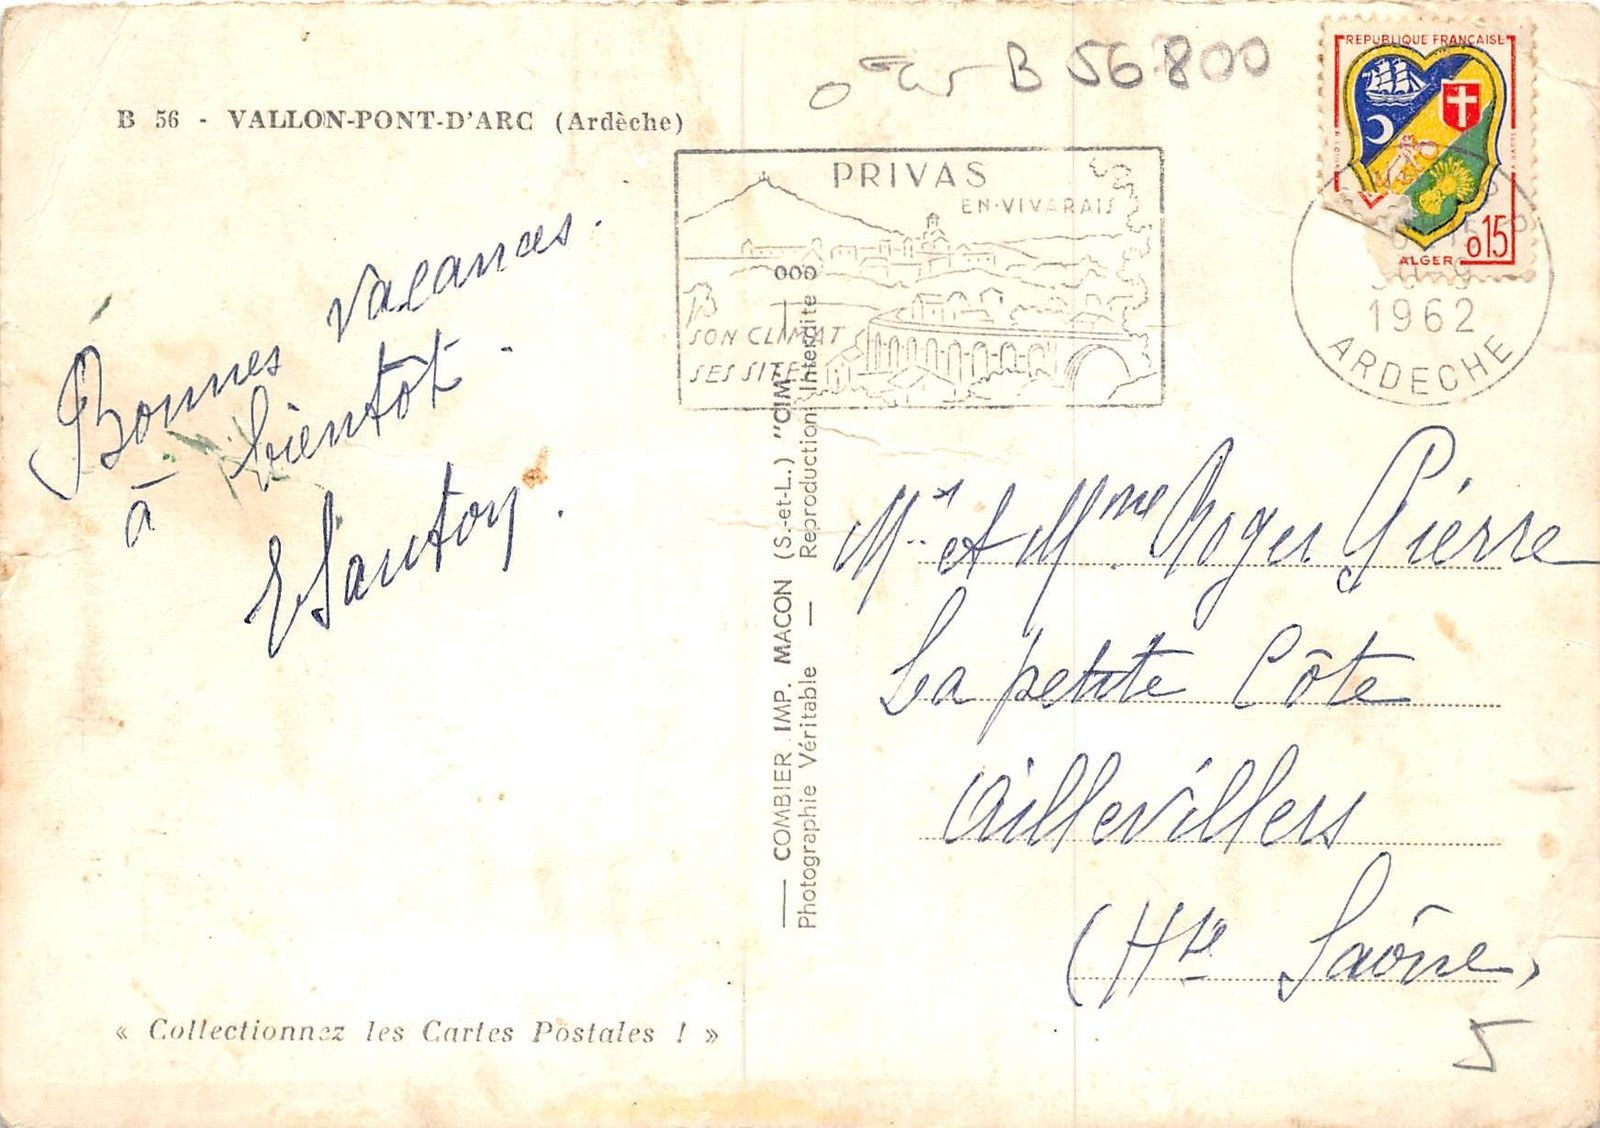 B 56 - VALLON-PONT-D'ARC (Ardèche)
Bonnes vacances.
à bientôt.
ESautory.
« Collectionnez les Cartes Postales ! »
COMBIER IMP. MACON (S.-et-L.) "CIM"
Photographie Véritable — Reproduction Interdite
B 56 800
PRIVAS
EN-VIVARAIS
SON CLIMAT
SES SITES
000
REPUBLIQUE FRANÇAISE
ALGER 0,15
1962
ARDECHE
Mr et Mme Roger Pierre
La petite Côte
Aillevillers
(Hte Saône)
5